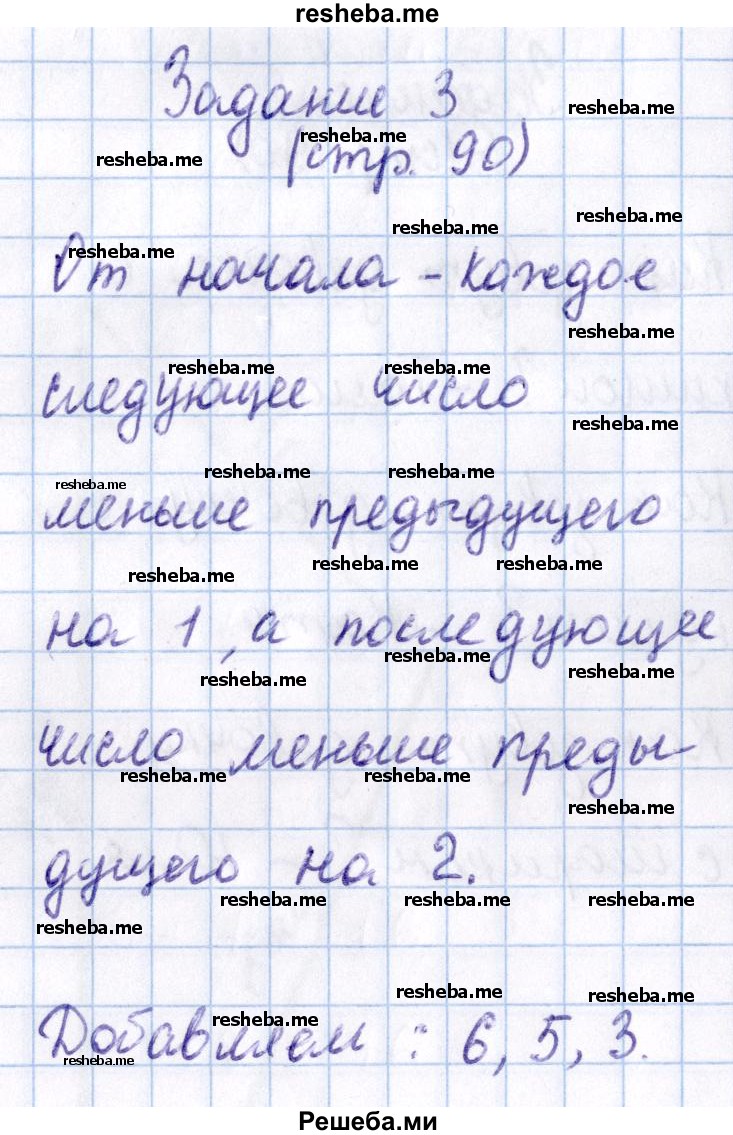 resheba.me
Задание 3
resheba.me
resheba.me
(стр. 90)
resheba.me
resheba.me
resheba.me
resheba.me
От начала – каждое
resheba.me
resheba.me
resheba.me
следующее число
resheba.me
resheba.me
resheba.me
resheba.me
меньше предыдущего
resheba.me
resheba.me
resheba.me
на 1, а последующее
resheba.me
resheba.me
resheba.me
число меньше преды-
resheba.me
resheba.me
resheba.me
дущего на 2.
resheba.me
resheba.me
resheba.me
resheba.me
resheba.me
resheba.me
resheba.me
Добавляем : 6, 5, 3.
resheba.me
Решеба.ми